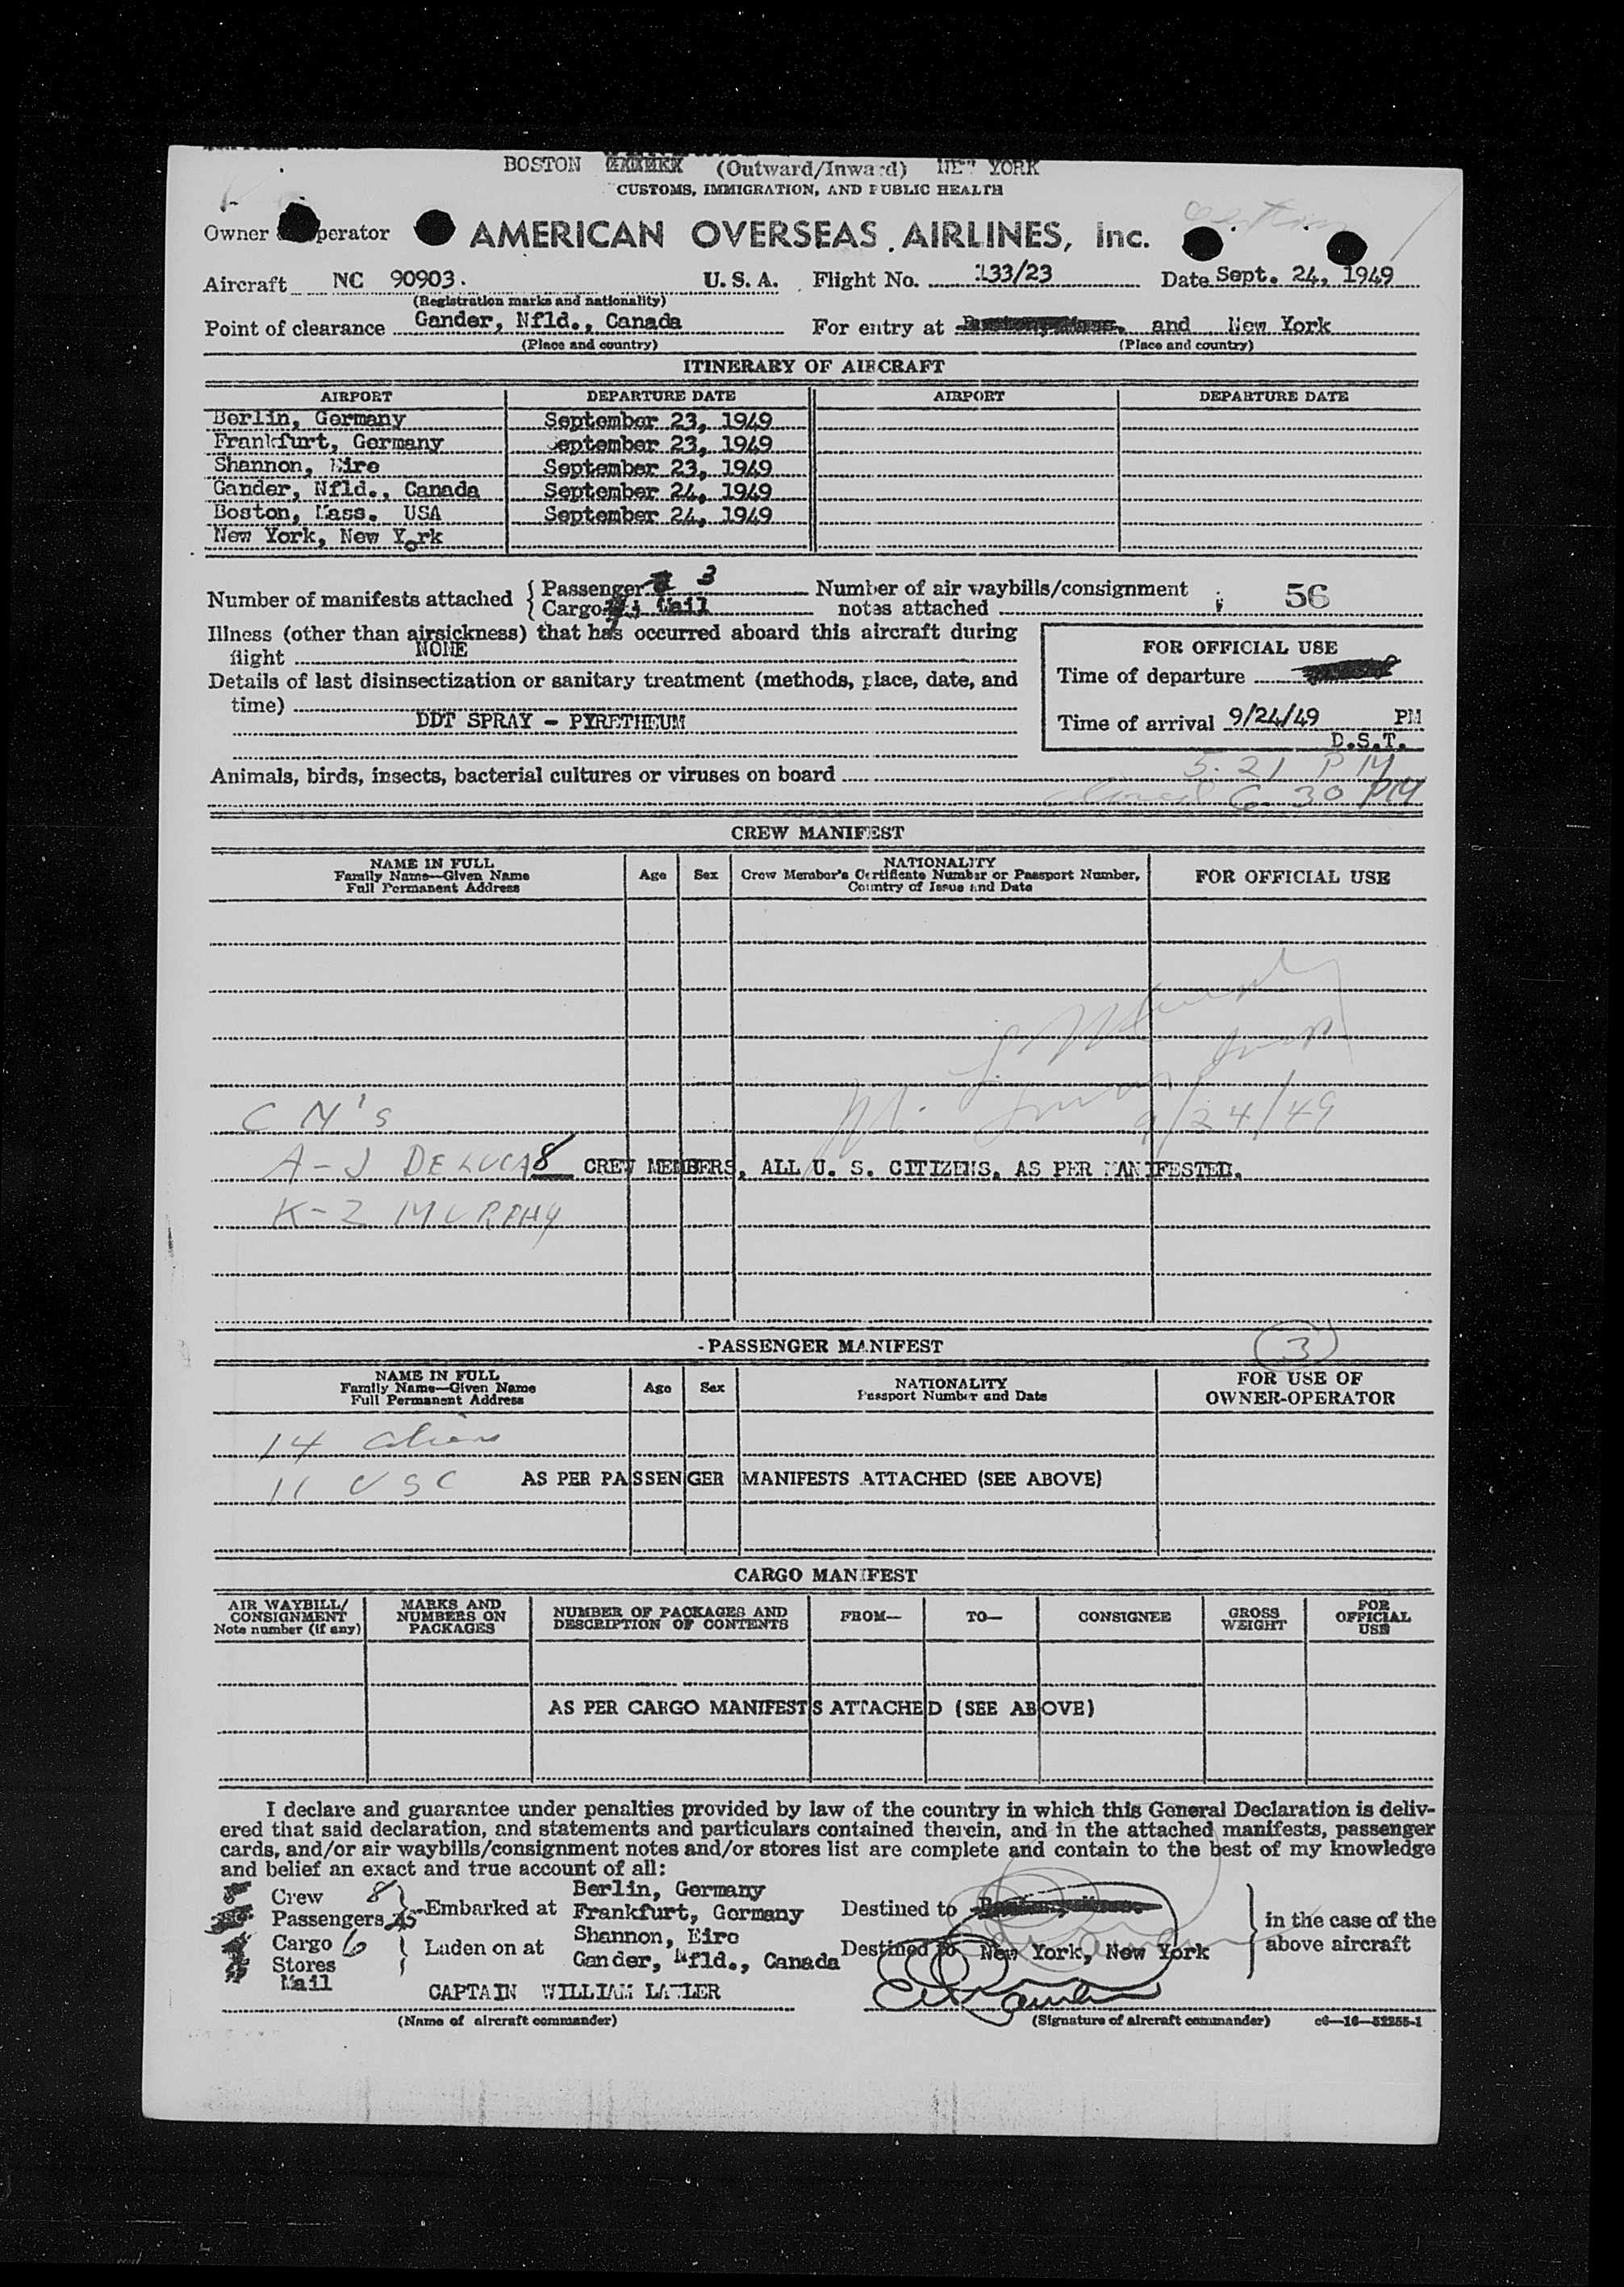 BOSTON (Outward/Inward) NEW YORK
CUSTOMS, IMMIGRATION, AND PUBLIC HEALTH
Owner perator AMERICAN OVERSEAS AIRLINES, Inc.
Aircraft NC 90903. U. S. A. Flight No. 133/23 Date Sept. 24, 1949
(Registration marks and nationality)
Point of clearance Gander, Nfld., Canada For entry at and New York
(Place and country) (Place and country)
ITINERARY OF AIRCRAFT
AIRPORT DEPARTURE DATE AIRPORT DEPARTURE DATE
Berlin, Germany September 23, 1949
Frankfurt, Germany September 23, 1949
Shannon, Eire September 23, 1949
Gander, Nfld., Canada September 24, 1949
Boston, Mass. USA September 24, 1949
New York, New York
Number of manifests attached { Passenger 3 Number of air waybills/consignment
Cargo Mail notes attached 56
Illness (other than airsickness) that has occurred aboard this aircraft during
flight NONE
FOR OFFICIAL USE
Time of departure
Details of last disinsectization or sanitary treatment (methods, place, date, and
time)
DDT SPRAY - PYRETHEUM
Time of arrival 9/24/49 PM
D.S.T.
Animals, birds, insects, bacterial cultures or viruses on board 5.21 PM
6 30 PM
CREW MANIFEST
NAME IN FULL
Family Name—Given Name
Full Permanent Address
Age Sex
NATIONALITY
Crew Member's Certificate Number or Passport Number,
Country of Issue and Date
FOR OFFICIAL USE
C M's 9/24/49
A-J DELUCA 8 CREW MEMBERS, ALL U. S. CITIZENS, AS PER MANIFESTED.
K-Z MURPHY
PASSENGER MANIFEST 3
NAME IN FULL
Family Name—Given Name
Full Permanent Address
Age Sex
NATIONALITY
Passport Number and Date
FOR USE OF
OWNER-OPERATOR
14 aliens
11 USC AS PER PASSENGER MANIFESTS ATTACHED (SEE ABOVE)
CARGO MANIFEST
AIR WAYBILL/
CONSIGNMENT
Note number (if any)
MARKS AND
NUMBERS ON
PACKAGES
NUMBER OF PACKAGES AND
DESCRIPTION OF CONTENTS
FROM— TO— CONSIGNEE
GROSS
WEIGHT
FOR
OFFICIAL
USE
AS PER CARGO MANIFESTS ATTACHED (SEE ABOVE)
I declare and guarantee under penalties provided by law of the country in which this General Declaration is deliv-
ered that said declaration, and statements and particulars contained therein, and in the attached manifests, passenger
cards, and/or air waybills/consignment notes and/or stores list are complete and contain to the best of my knowledge
and belief an exact and true account of all:
Crew 8
Passengers 25
Cargo 6
Stores
Mail
Embarked at
Laden on at
Berlin, Germany
Frankfurt, Germany
Shannon, Eire
Gander, Nfld., Canada
Destined to
Destined to New York, New York
in the case of the
above aircraft
CAPTAIN WILLIAM
(Name of aircraft commander) (Signature of aircraft commander) c6—16—52255-1